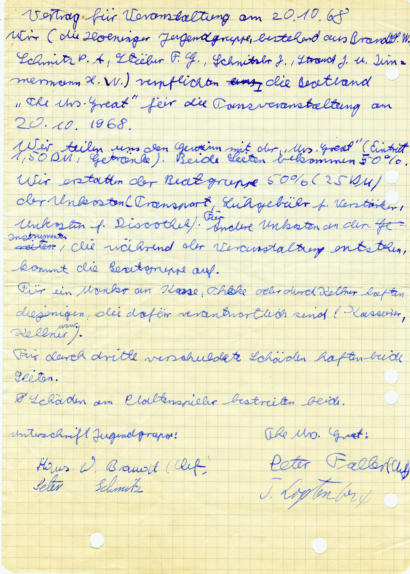 Vertrag für Veranstaltung am 20.10.68
Wir (die Hoeninger Jugendgruppe, bestehend aus Brandt H. W.
Schmitz P. A., Stüber F. G., Schnitzler J., Strand J. u. Zim-
mermann H. W.) verpflichten die Beatband
„The Mrs. Great" für die Tanzveranstaltung am
20.10.1968.
Wir teilen uns den Gewinn mit der „Mrs. Great" (Eintritt
1,50 DM, Getränke). Beide Seiten bekommen 50%.
Wir erstatten der Beatgruppe 50% (25 DM)
der Unkosten (Transport, Leihgebühr f. Verstärker,
Unkosten f. Discothek). Für andere Unkosten an der
Instrumenten, die während der Veranstaltung entstehen,
kommt die Beatgruppe auf.
Für ein Manko an Kasse, Theke oder durch Kellner haften
diejenigen, die dafür verantwortlich sind (Kassierer,
Kellner).
Für durch dritte verschuldete Schäden haften beide
Seiten.
Schäden am Plattenspieler bestreiten beide.
Unterschrift Jugendgruppe: The Mrs. Great:
Hans W. Brandt (Chef) Peter Faller (Chef)
Peter Schmitz J.